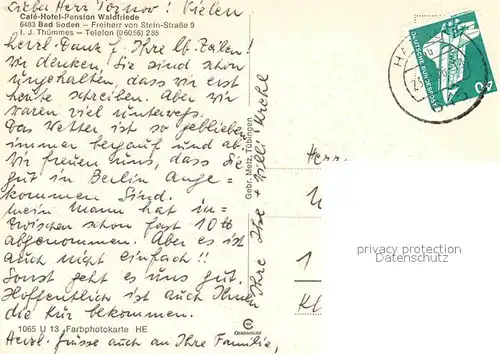 Lieber Herr! Vielen
Café-Hotel-Pension Waldfriede
6483 Bad Soden – Freiherr von Stein-Straße 9
I. J. Thümmes – Telefon (06056) 285
herzl. Dank f. Ihre lb. Zeilen!
Wir denken, Sie sind schon
ungehalten, dass wir erst
heute schreiben. Aber wir
waren viel unterwegs.
Das Wetter ist so geblieben
immer bergauf und ab.
Wir freuen uns, dass Sie
gut in Berlin ange-
kommen sind.
Mein Mann hat in-
zwischen schon fast 10 ℔
abgenommen. Aber es ist
auch nicht einfach!!
Sonst geht es uns gut.
Hoffentlich ist auch Ihnen
die Kur bekommen.
1065 U 13 Farbphotokarte HE
Herzl. Grüsse auch an Ihre Familie,
Ihre Ilse + Willi
Gebr. Metz, Tübingen
DEUTSCHE BUNDESPOST
Herr.
1
privacy protection
AKPOOL.DE